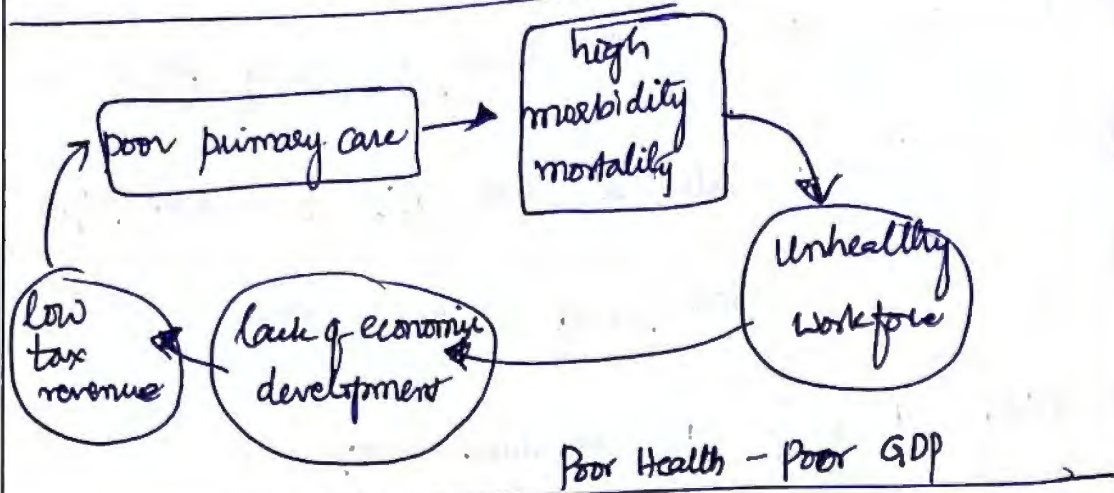 poor primary care
high
morbidity
mortality
Unhealthy
workforce
lack of economic
development
low
tax
revenue
Poor Health - Poor GDP